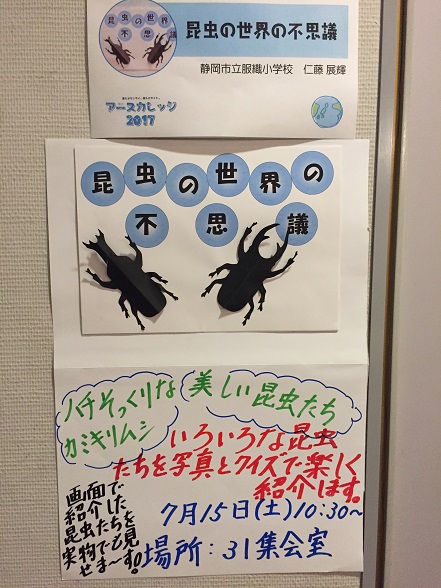 昆虫の世界の
不思議
昆虫の世界の不思議
静岡市立服織小学校 仁藤 展輝
アースカレッジ
2017
昆虫の世界の
不思議
ハチそっくりな
カミキリムシ
美しい昆虫たち
いろいろな昆虫
たちを写真とクイズで楽しく
紹介します。
画面で
紹介した
昆虫たちを
実物でも見
せま〜す。
7月15日(土)10:30~
場所:31集会室